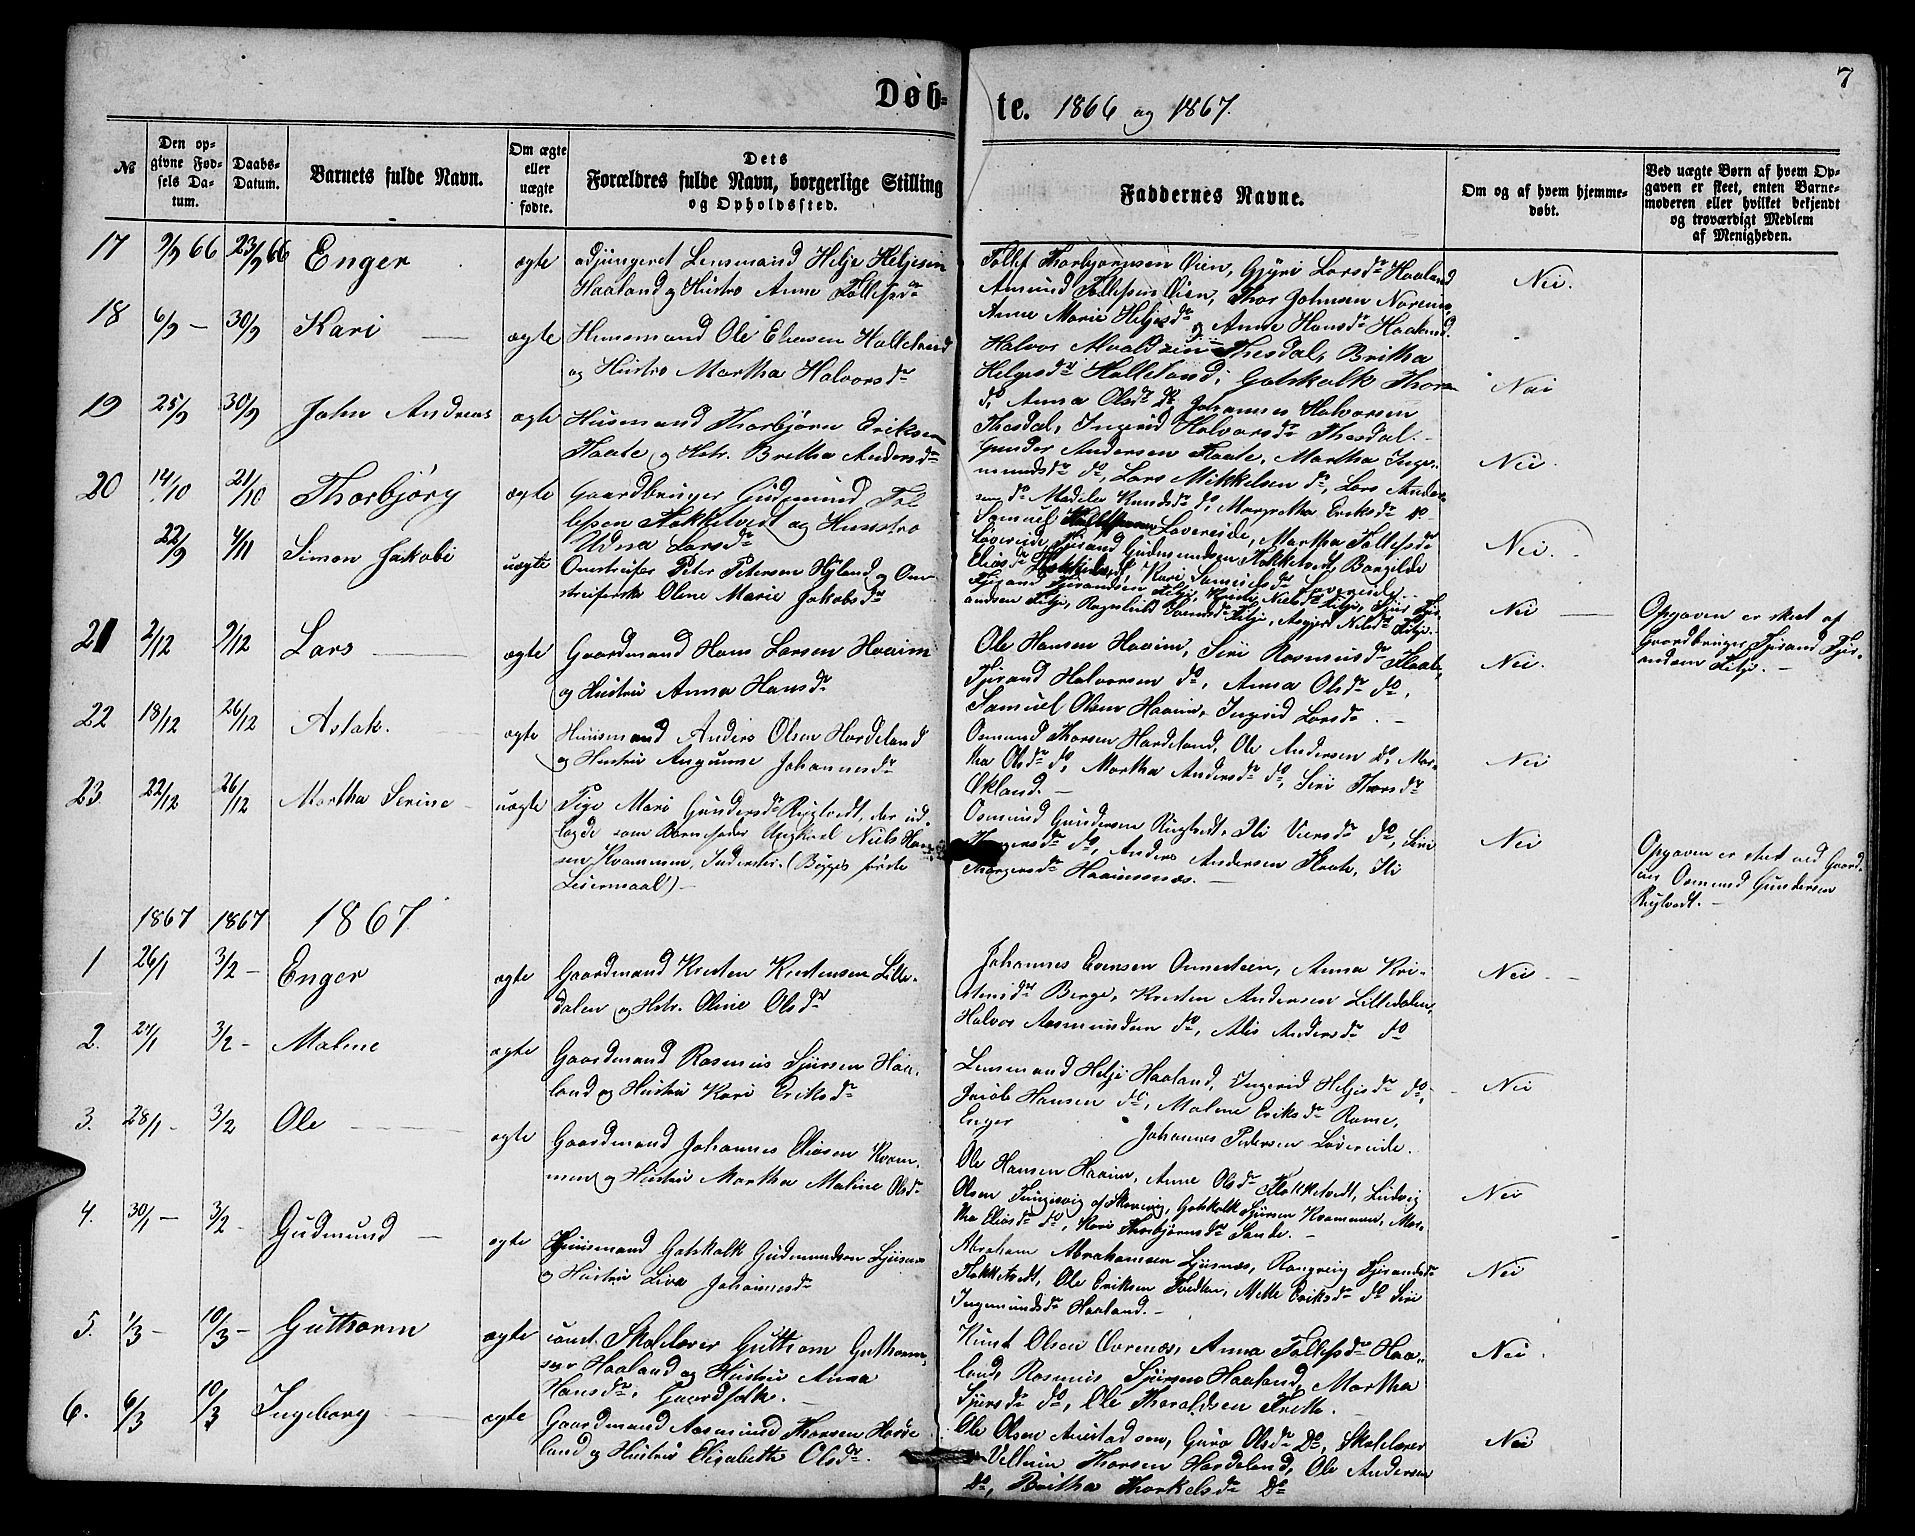 7
Døb-
te. 1866 og 1867.
№
Den op-
givne Fød-
sels Da-
tum.
Daabs-
Datum.
Barnets fulde Navn.
Om ægte
eller
uægte
fødte.
Dets
Forældres fulde Navn, borgerlige Stilling
og Opholdssted.
Faddernes Navne.
Om og af hvem hjemme-
døbt.
Ved uægte Børn af hvem Op-
gaven er skeet, enten Barne-
moderen eller hvilket bekjendt
og troværdigt Medlem
af Menigheden.
17 9/9 66 23/9 66 Enger ægte adjungeret Lensmand Helje Heljesen
Haaland og Hustro Anne Tollefsdr
Tollef Thorbjørnsen Øien, Gjyri Larsdr Haaland
Amund Tollefsen Øien, Thor Johnsen
Anne Marie Heljesdr og Anne Hansdr Haaland.
Nei.
18 6/9 — 30/9 Kari — ægte Huusmand Ole Eliasen Halleland
og Hustro Martha Halvorsdr
Halvor Thesdal, Britha
Helgesdr Halleland, Gotskalk Thor
do, Anna Olsdr Do, Johannes Halvorsen
Thesdal, Ingerid Halvorsdr Thesdal.
Nei
19 25/9 30/9 John Andreas ægte Husmand Thorbjørn Eriksen
Flaate og Hstr. Britha Andersdr
Gunder Andersen Flaate, Martha Inge-
mundsdr do, Lars Mikkelsen do, Lars Ander-
sen do Knudsdr do, Margretha Eriksdr do
Nei.
20 14/10 21/10 Thorbjørg ægte Gaardbruger Gudmund Tol-
lefsen Flokketvedt og Hustro
Udna Larsdr
Samuel Lovereide, Martha Tollefsdr
Løvereide, Tjerand Gudmundsen Flokketvedt, Borgilde
Eliasdr Kari Samuelsdr Lovereide
Nei.
22/9 4/11 Simon Jakobi uægte Omstreifer Peter Petersen Hyland og Om-
streiferske Oline Marie Jakobsdr
Tjerand Tjerandsen Filje, Nielsdr Filje,
andsen Filje, Ragnhild Filje, Nilsdr Filje.
Nei —
Opgaven er skeet af
Gaardbruger Tjerand Tjer-
andsen Filje. —
21 2/12 9/12 Lars — ægte Gaardmand Hans Larsen Haaim
og Hustru Anna Hansdr
Ole Hansen Haaim, Siri Rasmusdr Flaate,
Tjerand Halvorsen do, Anna Olsdr do,
Samuel Olsen Haaim, Ingrid Larsdr. —
Nei.
22 18/12 26/12 Aslak. ægte Huusmand Anders Olsen Hardeland
og Hustru Angunne Johannesdr
Osmund Thorsen Hardeland, Ole Andersen Do, Mar-
tha Olsdr do, Martha Andersdr do, Siri Thorsdr
Økland. —
Nei
23. 22/12 26/12 Martha Serine uægte Pige Mari Gundersdr Rygtvedt, der ud-
lagde som Barnefader Ungkarl Niels Han-
sen Kvammen, Inderster. (Begges første
Leiermaal) —
Osmund Gundersen Rygtvedt, Ili do, Siri
Thorgersdr do, Anders Andersen Flaate, Ili
Thorgersdr Haaimsnæs. —
Nei
Opgaven er skeet ved Gaard-
Osmund Gundersen
Rygtvedt. —
1867 1867 1867.
1 26/1 3/2 — Enger ægte Gaardmand Kristen Kristensen Lille-
dalen og Hstr. Oline Olsdr
Johannes Evensen Ornestein, Anna Kri-
stensdr Berge, Kristen Andersen Lilledalen,
Halvor Aasmundsen do, Alis Andersdr do
Nei —
2. 27/1 3/2 — Maline ægte Gaardmand Rasmus Sjursen Haa-
land og Hustru Kari Eriksdr
Lensmand Helje Haaland, Ingerid Heljesdr do,
Jacob Hansen do, Malene Eriksdr Rame,
Enger Johannes Pedersen Løvereide.
Nei
3. 28/1 — 3/2 Ole — ægte Gaardmand Johannes Eliasen Kvam-
men og Hustru Martha Maline Olsdr
Ole Hansen Haaim, Anne Olsdr Flokketvedt, Ludvig
Olsen Tungesvig af Skonevig, Gotskalk Sjursen Kvammen, Mar-
tha Eliasdr do, Kari Thorbjørnsdr Sande. —
Nei
4. 30/1 — 3/2 — Gudmund — ægte Huusmand Gotskalk Gudmundsen Ljusnæs
og Hustru Liva Johannesdr
Abraham Abrahamsen Ljusnæs, Rangveig Tjerandsdr
Flokketvedt, Ole Eriksen Tvedten, Mette Eriksdr do Siri
Ingemundsdr Haaland. —
Nei
5. 1/3 — 10/3 — Guthorm ægte const. Skolelærer Guthorm Guthorm-
sen Haaland og Hustru Anna
Hansdr, Gaardfolk. —
Knut Olsen Overnæs, Anna Tollefsdr Haa-
land, Rasmus Sjursen Haaland, Martha
Sjursdr do, Ole Tharaldsen Frette. —
Nei.
6. 6/3 10/3 Ingeborg — ægte Gaardmand Aasmund Thorsen Harde-
land og Hustru Elisabetta Olsdr.
Ole Olsen Austad, Guro Olsdr Do, Skolelærer
Thorsen Hardeland, Ole Andersen
Do, Britha Thorkelsdr Do
Nei